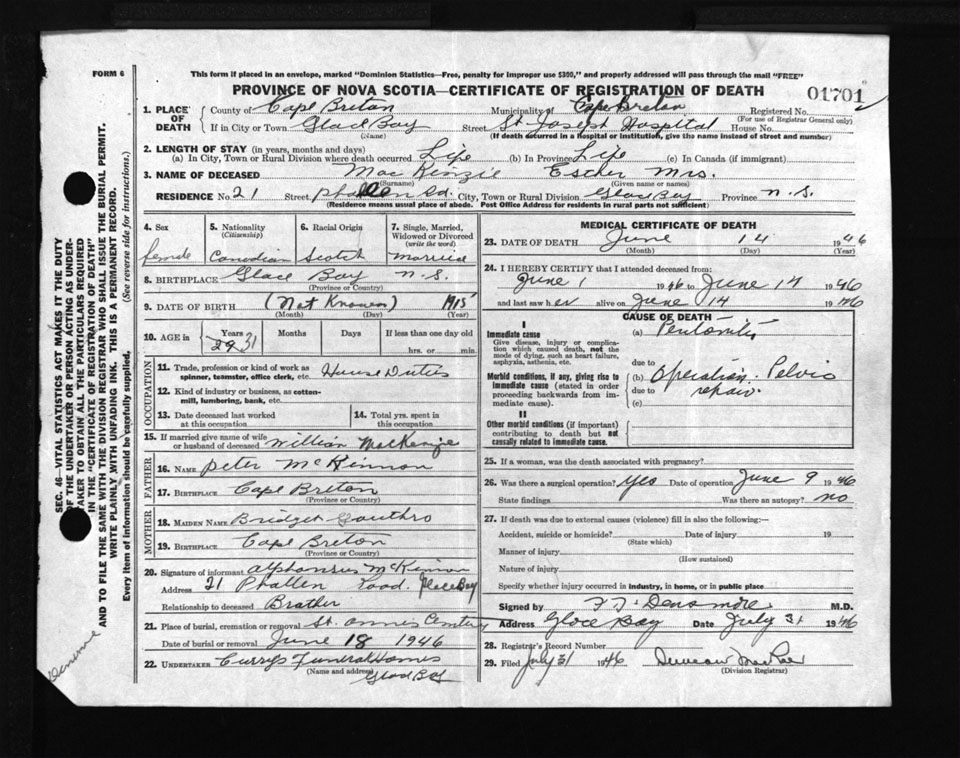 FORM 6
This form if placed in an envelope, marked "Dominion Statistics—Free, penalty for improper use $300," and properly addressed will pass through the mail "FREE"
PROVINCE OF NOVA SCOTIA—CERTIFICATE OF REGISTRATION OF DEATH
01701
1. PLACE OF DEATH County of Cape Breton Municipality of Cape Breton Registered No.
(For use of Registrar General only)
If in City or Town Glace Bay Street St. Joseph Hospital House No.
(Name) (If death occurred in a Hospital or Institution, give the name instead of street and number)
2. LENGTH OF STAY (in years, months and days)
(a) In City, Town or Rural Division where death occurred Life (b) In Province Life (c) In Canada (if immigrant)
3. NAME OF DECEASED Mac Kenzie Esther Mrs.
(Surname) (Given name or names)
RESIDENCE No 21 Street Phallen Rd. City, Town or Rural Division Glace Bay Province N.S.
(Residence means usual place of abode. Post Office Address for residents in rural parts not sufficient)
4. Sex female
5. Nationality (Citizenship) Canadian
6. Racial Origin Scotch
7. Single, Married, Widowed or Divorced (write the word) Married
8. BIRTHPLACE Glace Bay N.S.
(Province or Country)
9. DATE OF BIRTH (Not Known) 1915
(Month) (Day) (Year)
10. AGE in Years Months Days If less than one day old
29 31 hrs. or min.
OCCUPATION
11. Trade, profession or kind of work as spinner, teamster, office clerk, etc. House Duties
12. Kind of industry or business, as cotton-mill, lumbering, bank, etc.
13. Date deceased last worked at this occupation
14. Total yrs. spent in this occupation
15. If married give name of wife or husband of deceased William MacKenzie
FATHER
16. NAME Peter McKinnon
17. BIRTHPLACE Cape Breton
(Province or Country)
MOTHER
18. MAIDEN NAME Bridget Gouthro
19. BIRTHPLACE Cape Breton
(Province or Country)
20. Signature of informant Alphonsus McKinnon
Address 21 Phallen Road. Glace Bay
Relationship to deceased Brother
21. Place of burial, cremation or removal St. Annes Cemtery
Date of burial or removal June 18 1946
22. UNDERTAKER Currys Funeral Homes
(Name and address) Glace Bay
MEDICAL CERTIFICATE OF DEATH
23. DATE OF DEATH June 14 1946
(Month) (Day) (Year)
24. I HEREBY CERTIFY that I attended deceased from:
June 1 1946 to June 14 1946
and last saw her alive on June 14 1946
CAUSE OF DEATH
I
Immediate cause (a) Peritonitis
Give disease, injury or complication which caused death, not the mode of dying, such as heart failure, asphyxia, asthenia, etc.
due to
Morbid conditions, if any, giving rise to immediate cause (stated in order proceeding backwards from immediate cause). (b) Operation. Pelvic
due to repair
(c)
II
Other morbid conditions (if important) contributing to death but not causally related to immediate cause.
25. If a woman, was the death associated with pregnancy?
26. Was there a surgical operation? Yes Date of operation June 9 1946
State findings Was there an autopsy? no
27. If death was due to external causes (violence) fill in also the following:—
Accident, suicide or homicide? Date of injury 19
(State which)
Manner of injury
(How sustained)
Nature of injury
Specify whether injury occurred in industry, in home, or in public place
Signed by Densmore M.D.
Address Glace Bay Date July 31 1946
28. Registrar's Record Number
29. Filed July 31 1946 Duncan MacRae
(Division Registrar)
SEC. 46—VITAL STATISTICS ACT MAKES IT THE DUTY
OF THE UNDERTAKER OR PERSON ACTING AS UNDER-
TAKER TO OBTAIN ALL THE PARTICULARS REQUIRED
IN THE "CERTIFICATE OF REGISTRATION OF DEATH"
AND TO FILE THE SAME WITH THE DIVISION REGISTRAR WHO SHALL ISSUE THE BURIAL PERMIT.
WRITE PLAINLY WITH UNFADING INK. THIS IS A PERMANENT RECORD.
Every item of information should be carefully supplied. (See reverse side for instructions.)